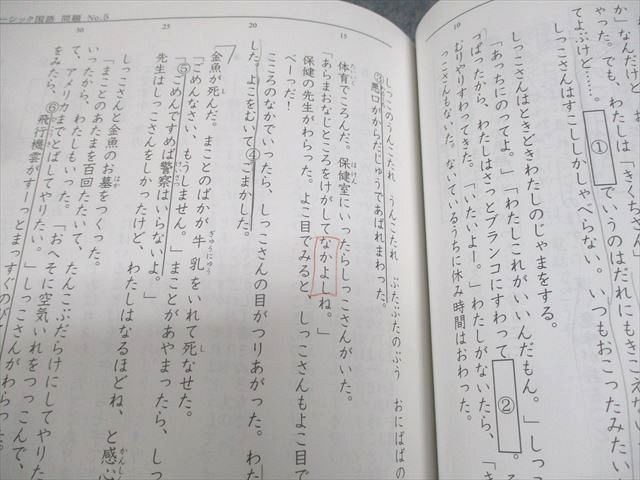 ーシック国語 問題 No.5
か」なんだけど
やった。でも、わたしは「きくちさん」
てよぶけど……。
① でいうのはだれにもきこえない
しっこさんはすこししかしゃべらない。いつもおこったみたい
しっこさんはときどきわたしのじゃまをする。
10
「あっちにのってよ。」「わたしこれがいいんだもん。」しっこ
っぱったから、わたしはさっとブランコにすわって ② 。
むりやりすわってきた。「いたいよー。」わたしがないたら、「き
くちさんもないた。ないているうちに休み時間はおわった。
しっこのうんこたれ うんこたれ ぶたぶたのぶう おにばばの
③悪口がからだじゅうであばれまわった。
15
体育でころんだ。保健室にいったらしっこさんがいた。
ほけん
「あらまおなじところをけがしてなかよしね。」
保健の先生がわらった。よこ目でみると、しっこさんもよこ目で
べーっだ!
こころのなかでいったら、しっこさんの目がつりあがった。わた
20
した。よこをむいて④ごまかした。
金魚が死んだ。まことのばかが牛乳をいれて死なせた。
し
ぎゅうにゅう
し
「ごめんなさい、もうしません。」まことがあやまったら、しっこ
「⑤ごめんですめば警察はいらないよ。」
けいさつ
25
先生はしっこさんをしかったけど、わたしはなるほどね、と感心
かんしん
しっこさんと金魚のお墓をつくった。
はか
「まことのあたまを百回たたいて、たんこぶだらけにしてやりた
いったから、わたしもいった。「おへそに空気いれをつっこんで、
て、アメリカまでとばしてやりたい。」しっこさんがわらった。
30
をみたら、⑥飛行機雲がすーっとまっすぐのびて